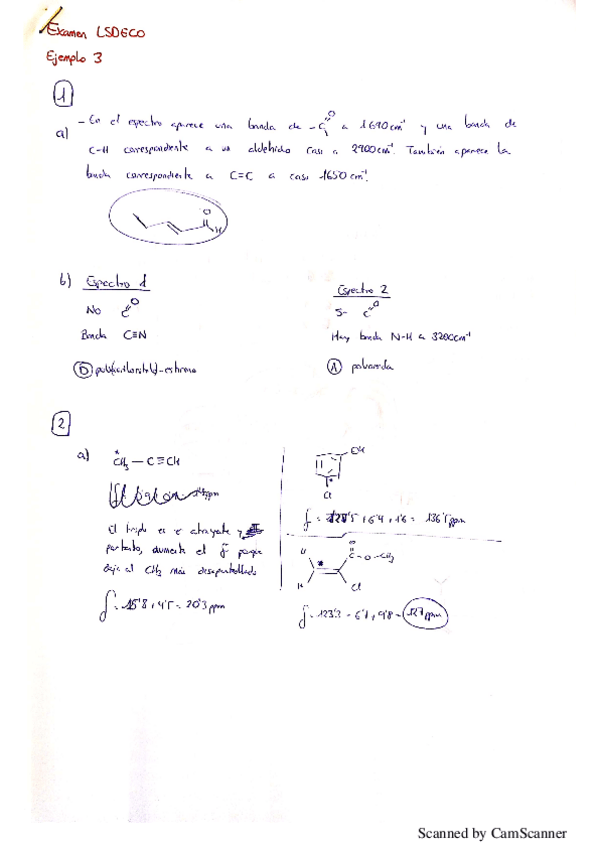 Examen LSDECO
Ejemplo 3
1
a) - En el espectro aparece una banda de -C=O a 1690cm⁻¹ y una banda de
C-H correspondiente a un aldehído casi a 2900cm⁻¹. También aparece la
banda correspondiente a C=C a casi 1650 cm⁻¹.
O
H
b) Espectro 1
No C=O
Banda C≡N
D
Espectro 2
Si C=O
Hay banda N-H a 3200cm⁻¹
A poliamida
2
a) *CH₃ — C≡CH
El triple es e⁻ atrayente y
por tanto, aumenta el δ porque
deja al CH₃ más desapantallado
δ = 15'8 + 4'5 = 20'3 ppm
OH
*
Cl
+ 6'4 + 1'6 = 136'5 ppm
H
H
*
C
O
O-CH₃
Cl
δ = 123'3 - 6'1 + 9'8 = 127 ppm
Scanned by CamScanner